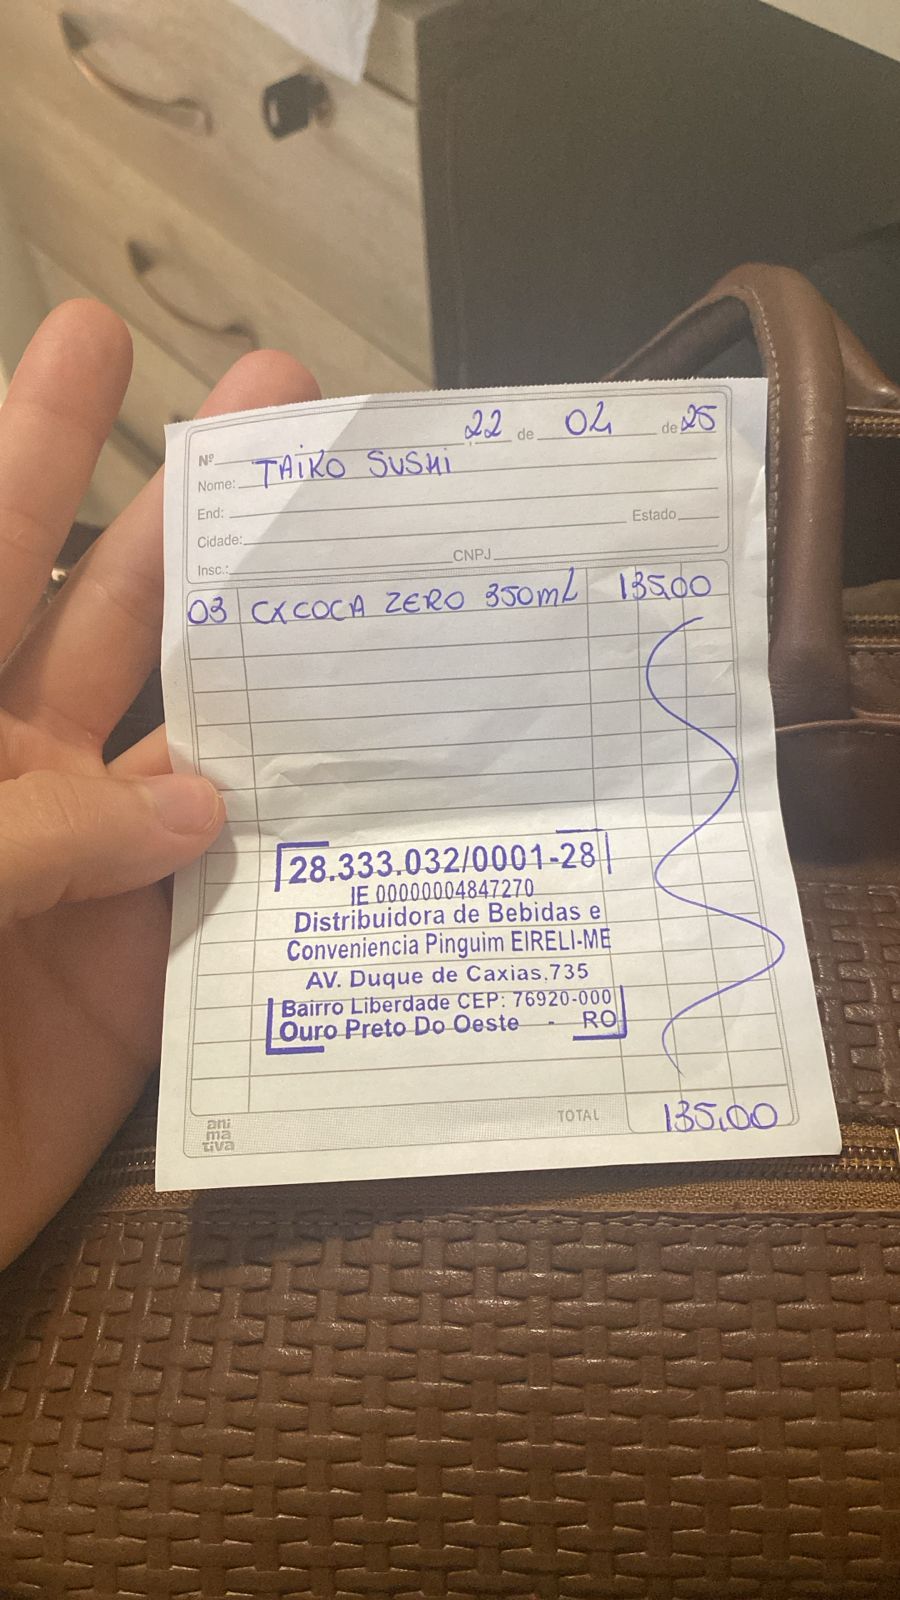 22 de 04 de 25
Nº
Nome: TAIKO SUSHI
End:
Cidade: Estado
Insc.: CNPJ
03 CX COCA ZERO 350mL 135,00
28.333.032/0001-28
IE 00000004847270
Distribuidora de Bebidas e
Conveniencia Pinguim EIRELI-ME
AV. Duque de Caxias,735
Bairro Liberdade CEP: 76920-000
Ouro Preto Do Oeste - RO
ani
ma
tiva
TOTAL 135,00